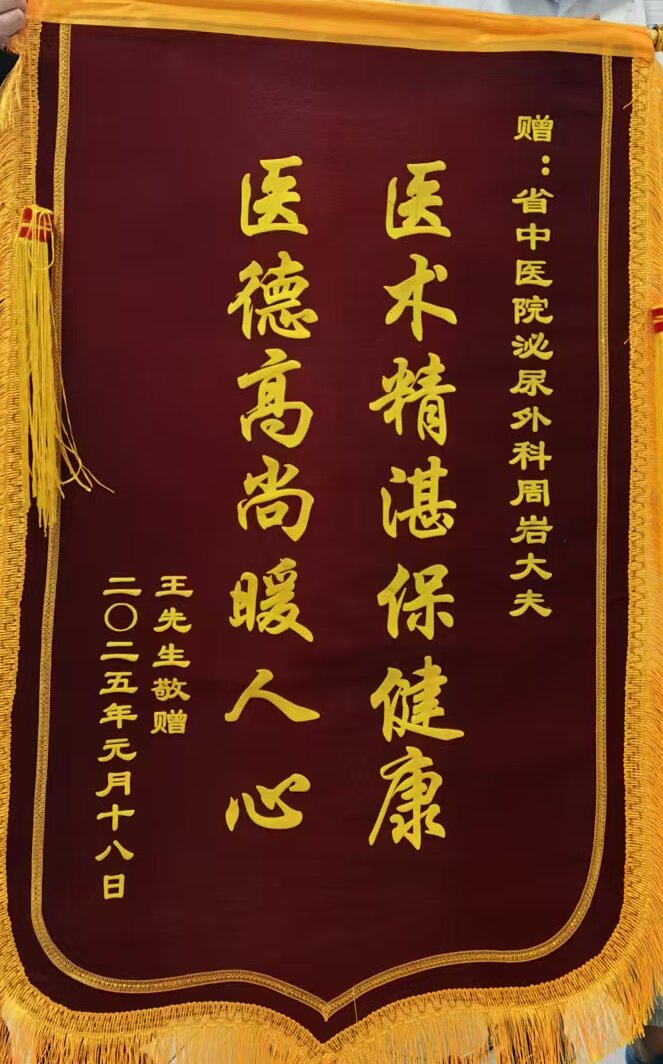 赠：省中医院泌尿外科周岩大夫
医术精湛保健康
医德高尚暖人心
王先生敬赠
二〇二五年元月十八日